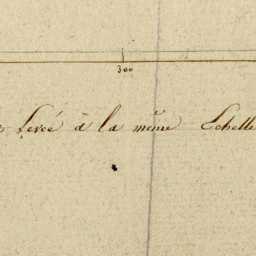 300
Levé à la même Echelle